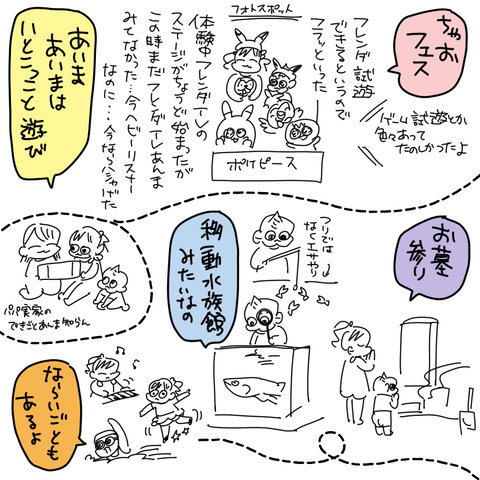 ちゃお
フェス
フレンダ試遊
できるというので
フラッといった
ゲーム試遊とか
色々あって
たのしかったよ
フォトスポット
ポケピース
体験中フレンダインの
ステージがちょうど始まったが
この時まだフレンダインあんま
みてなかった…今ヘビーリスナー
なのに…今ならシャげた
あいま
あいまは
いとこっこと遊び
お墓
参り
つりでは
なくエサやり
移動水族館
みたいなの
パパ実家の
できごとあんま知らん
ならいごとも
あるよ